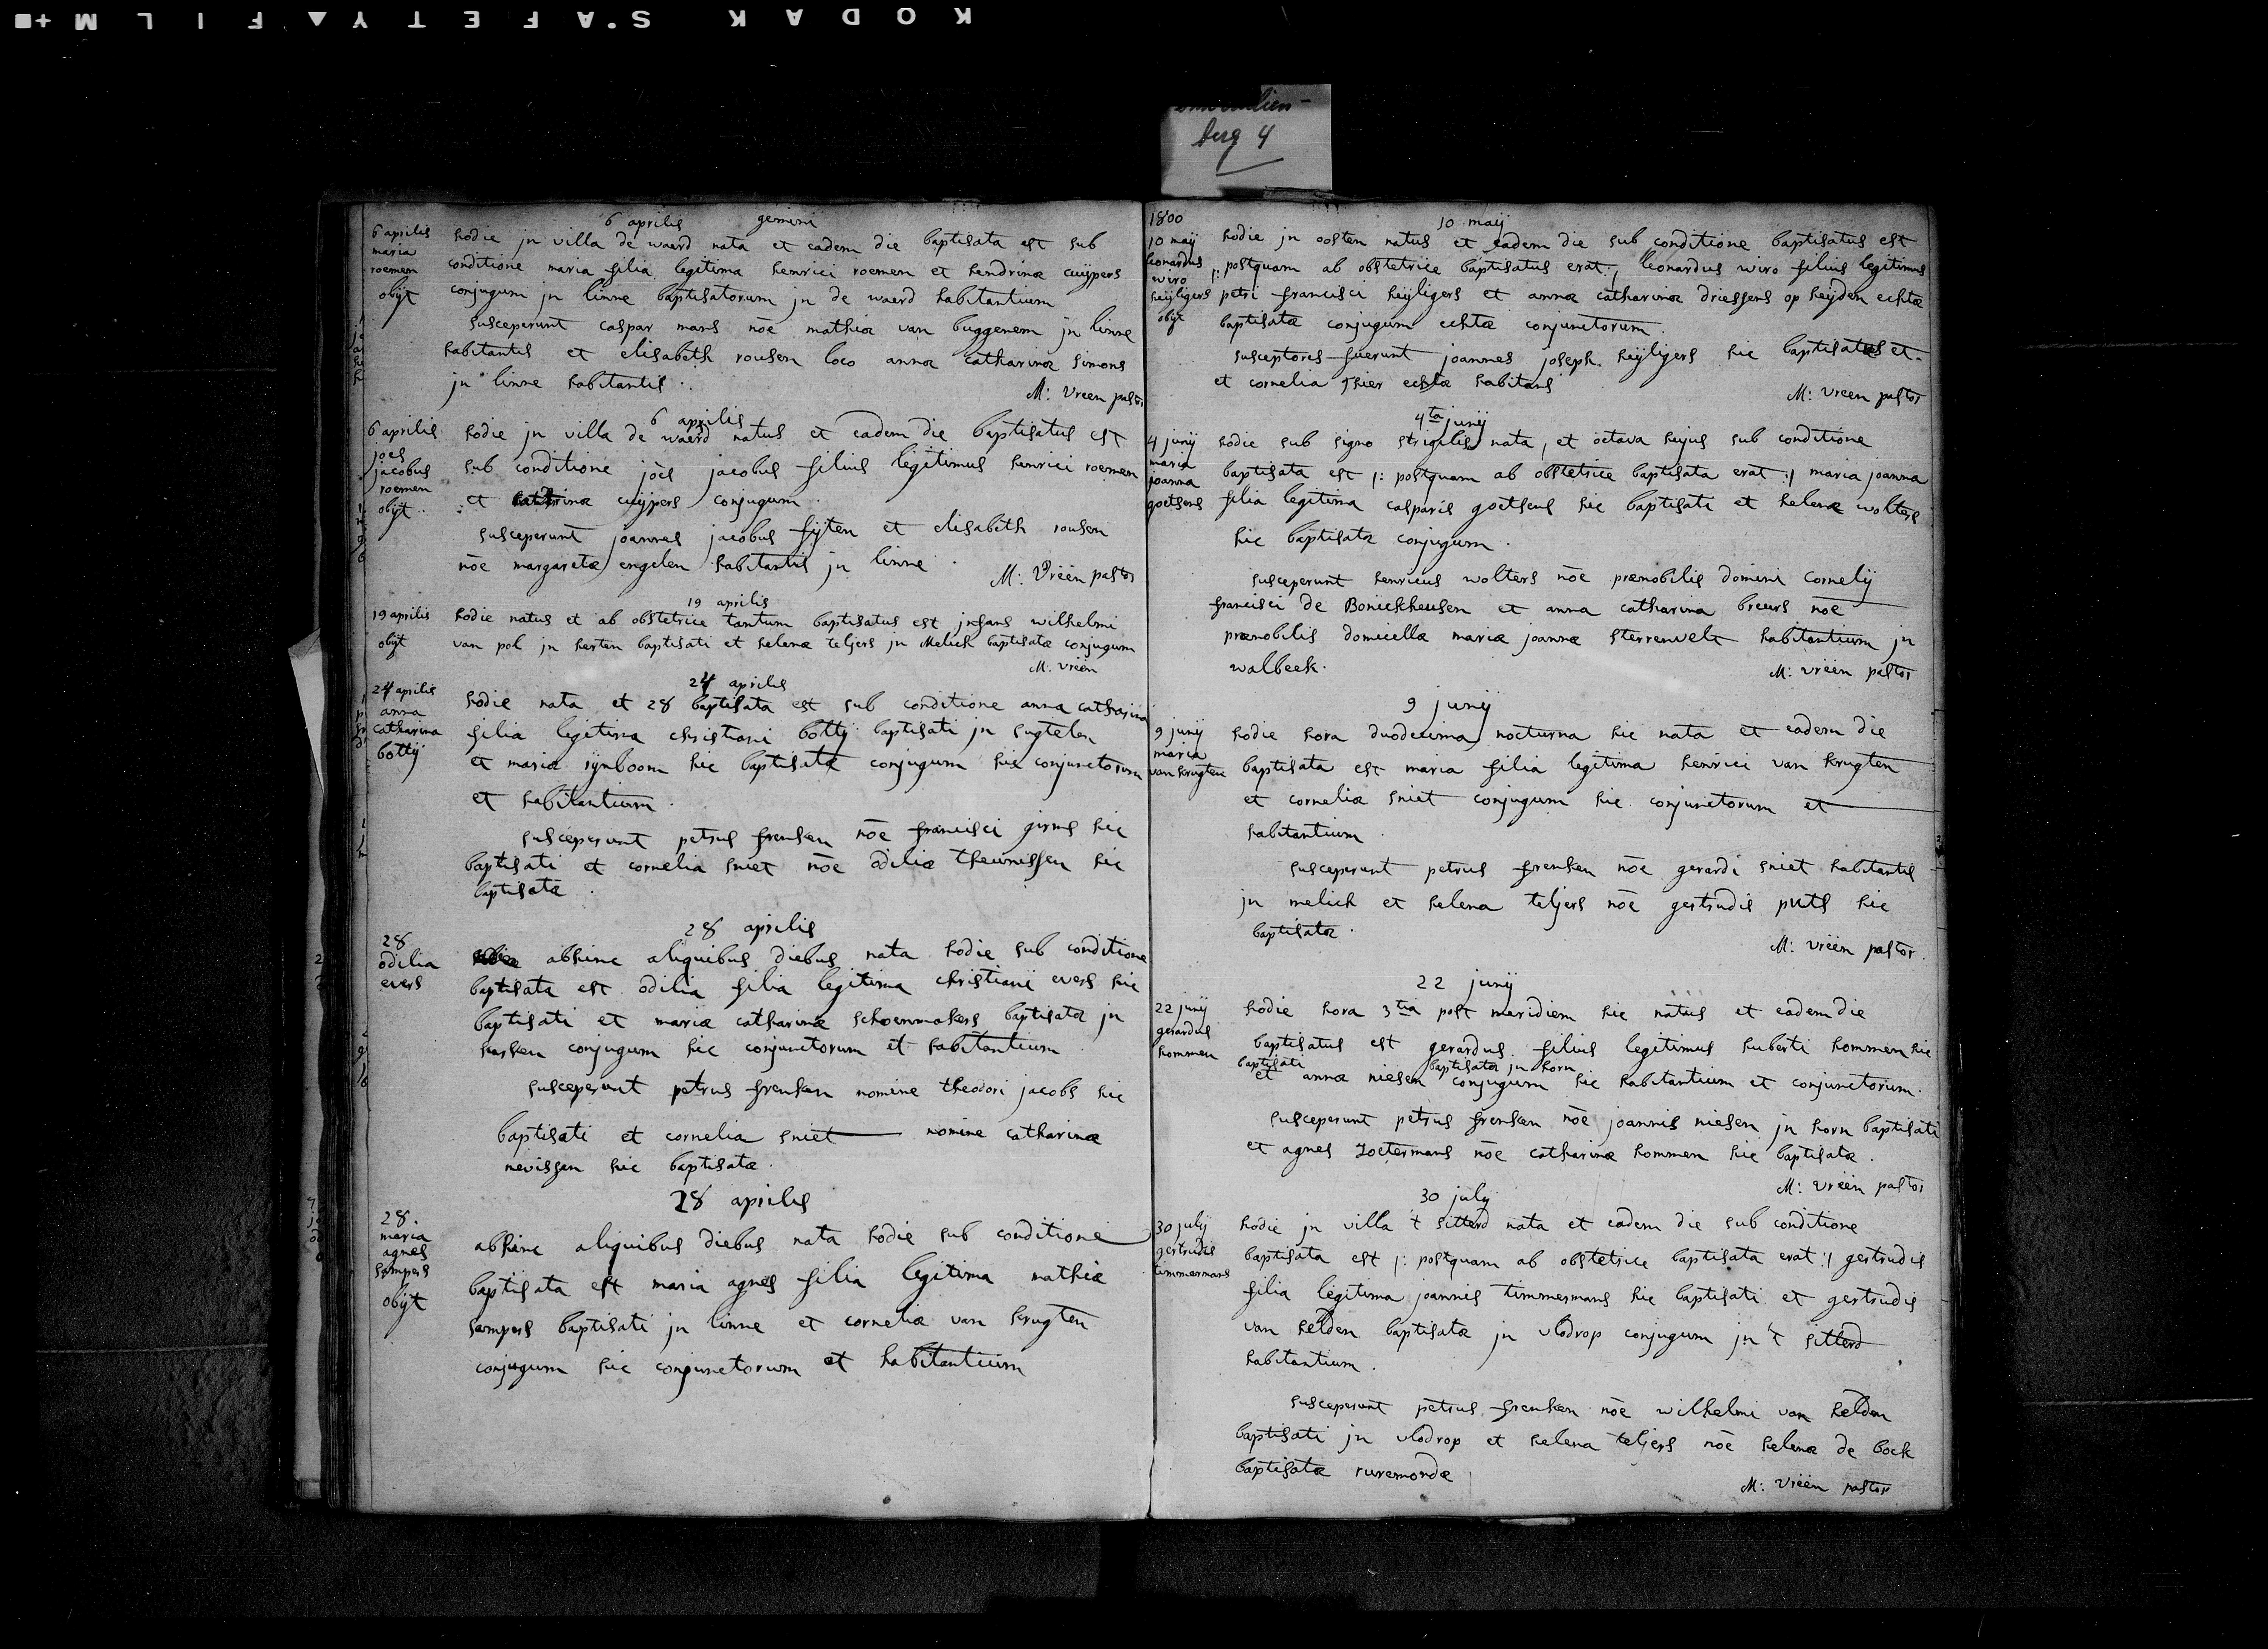 KODAK SAFETY FILM
berg 4
6 aprilis gemini
6 aprilis
maria
roemen
obijt
hodie jn villa de waerd nata et eadem die baptisata est sub
conditione maria filia legitima henrici roemen et hendrinæ cuijpers
conjugum jn linne baptisatorum jn de waerd habitantium
susceperunt caspar mans nōe mathiæ van buggenem jn linne
habitantis et elisabeth rousen loco annæ catharinæ simons
jn linne habitantis.
M: vreen pastor
6 aprilis
6 aprilis
joës
jacobus
roemen
obijt
hodie jn villa de waerd natus et eadem die baptisatus est
sub conditione joës jacobus filius legitimus henrici roemen
et cuijpers conjugum.
susceperunt joannes jacobus sijten et elisabeth rousen
nōe margaretæ engelen habitantis jn linne.
M: Vrëen pastor
19 aprilis
19 aprilis
obijt
hodie natus et ab obstetrice tantum baptisatus est jnfans wilhelmi
van pol jn herten baptisati et helenæ teljers jn Melick baptisatæ conjugum
M: vrëen
24 aprilis
24 aprilis
anna
catharina
botty
hodie nata et 28 baptisata est sub conditione anna catharina
filia legitima christiani botty baptisati jn sugtelen
et mariæ rijnboom hic baptisatæ conjugum hic conjunctorum
et habitantium.
susceperunt petrus frenken nōe francisci girms hic
baptisati et cornelia sniet nōe odiliæ theunissen hic
baptisatæ.
28 aprilis
28
odilia
evers
abhinc aliquibus diebus nata hodie sub conditione
baptisata est odilia filia legitima christiani evers hic
baptisati et mariæ catharinæ schoenmakers baptisatæ jn
conjugum hic conjunctorum et habitantium
susceperunt petrus frenken nomine theodori jacobs hic
baptisati et cornelia sniet nomine catharinæ
nevissen hic baptisatæ.
28 aprilis
28.
maria
agnes
sampers
obijt
abhinc aliquibus diebus nata hodie sub conditione
baptisata est maria agnes filia legitima mathiæ
sampers baptisati jn linne et corneliæ van krugten
conjugum hic conjunctorum et habitantium
1800
10 maij
10 maij
leonardus
wiro
heijligers
obijt
hodie jn oosten natus et eadem die sub conditione baptisatus est
|: postquam ab obstetrice baptisatus erat :| leonardus wiro filius legitimus
petri francisci heijligers et annæ catharinæ driessens op heijden echtæ
baptisatæ conjugum echtæ conjunctorum.
susceptores fuerunt joannes joseph heijligers hic baptisatus et
et cornelia thier echtæ habitans
M: vreen pastor
4ta junij
4 junij
maria
joanna
goetsens
hodie sub signo strigilis nata, et octava hujus sub conditione
baptisata est |: postquam ab obstetrice baptisata erat :| maria joanna
filia legitima casparis goetsens hic baptisati et helenæ wolters
hic baptisatæ conjugum.
susceperunt henricus wolters nōe prænobilis domini Cornelij
francisci de Bonickhausen et anna catharina breurs nōe
prænobilis domicellæ mariæ joannæ sterrenvelt habitantium jn
walbeek.
M: vrëen pastor
9 junij
9 junij
maria
van krugten
hodie hora duodecima nocturna hic nata et eadem die
baptisata est maria filia legitima henrici van krugten
et corneliæ sniet conjugum hic conjunctorum et
habitantium.
susceperunt petrus frenken nōe gerardi sniet habitantis
jn melick et helena teljers nōe gertrudis puts hic
baptisatæ.
M: vrëen pastor.
22 junij
22 junij
gerardus
hommen
hodie hora 3tia post meridiem hic natus et eadem die
baptisatus est gerardus filius legitimus huberti hommen hic
baptisati baptisatæ jn horn
et annæ niesen conjugum hic habitantium et conjunctorum.
susceperunt petrus frenken nōe joannis niesen jn horn baptisati
et agnes zoetermans nōe catharinæ hommen hic baptisatæ.
M: vrëen pastor
30 july
30 july
gertrudis
timmermans
hodie jn villa 't sitterd nata et eadem die sub conditione
baptisata est |: postquam ab obstetrice baptisata erat :| gertrudis
filia legitima joannis timmermans hic baptisati et gertrudis
van helden baptisatæ jn vlodrop conjugum jn 't sitterd
habitantium.
susceperunt petrus frenken nōe wilhelmi van helden
baptisati jn vlodrop et helena teljers nōe helenæ de bock
baptisatæ ruremondæ
M: vrëen pastor